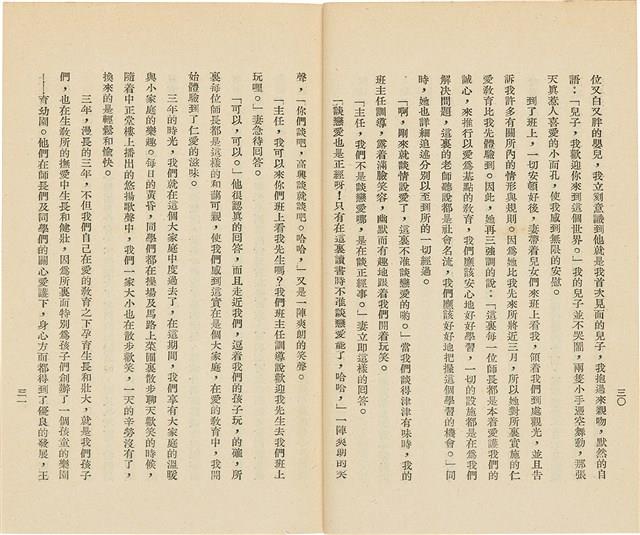 位又白又胖的嬰兒，我立刻意識到他就是我首次見面的兒子，我抱過來親吻，默然的自
語：「兒子，我歡迎你來到這個世界。」我的兒子並不哭鬧，兩隻小手憑空舞動，那張
天真惹人喜愛的小面孔，使我感到無限的安慰。
到了班上，一切安頓好後，妻帶着兒女們來班上看我，領着我們到處觀光，並且告
訴我許多有關所內的情形與規則。因爲她比我先來所將近三月，所以她對所裏實施的仁
愛教育比我先體驗到。因此，她再三強調的說：「這裏每一位師長都是本着愛護我們的
誠心，來推行以愛爲基點的教育，我們應該安心地好好學習，一切的設施都是在爲我們
解決問題，這裏的老師聽說都是社會名流，我們應該好好地把握這個學習的機會。」同
時，她也詳細追述分別以至到所的一切經過。
「啊，剛來就談情說愛了，這裏不准談戀愛的喲。」當我們談得津津有味時，我的
班主任訓導，露着滿臉笑容，幽默而有趣地跟着我們開着玩笑。
「主任，我們不是談戀愛哪，是在談正經事。」妻立即這樣的回答。
「談戀愛也是正經呀！只有在這裏讀書時不准談戀愛罷了，哈哈，」一陣爽朗的笑
三〇
聲，「你們談吧，高興談就談吧。哈哈，」又是一陣爽朗的笑聲。
「主任，我可以來你們班上看我先生嗎？我們班主任訓導說歡迎我先生去我們班上
玩哩。」妻急待回答。
「可以，可以。」他很認真的回答，而且走近我們，逗着我們的孩子玩，的確，所
裏每位師長都是這樣的和藹可親，使我們感到這實在是個大家庭，在愛的教育中，我開
始體驗到了仁愛的滋味。
三年的時光，我們就在這個大家庭中度過去了，在這期間，我們享有大家庭的溫暖
與小家庭的樂趣。每日的黃昏，同學們都在操場及馬路上菜圃裏散步聊天歡笑的時候，
隨着中正堂樓上播出的悠揚歌聲中，我們一家大小也在散步歡笑，一天的辛勞沒有了，
換來的是輕鬆和愉快。
三年，漫長的三年，不但我們自己在愛的教育之下孕育生長和壯大，就是我們孩子
們，也在生教所的撫愛中生長和健壯，因爲所裏而特別爲孩子們創辦了一個孩童的樂園
——育幼園。他們在師長們及同學們的關心愛護下，身心方面都得到了優良的發展，王
三一